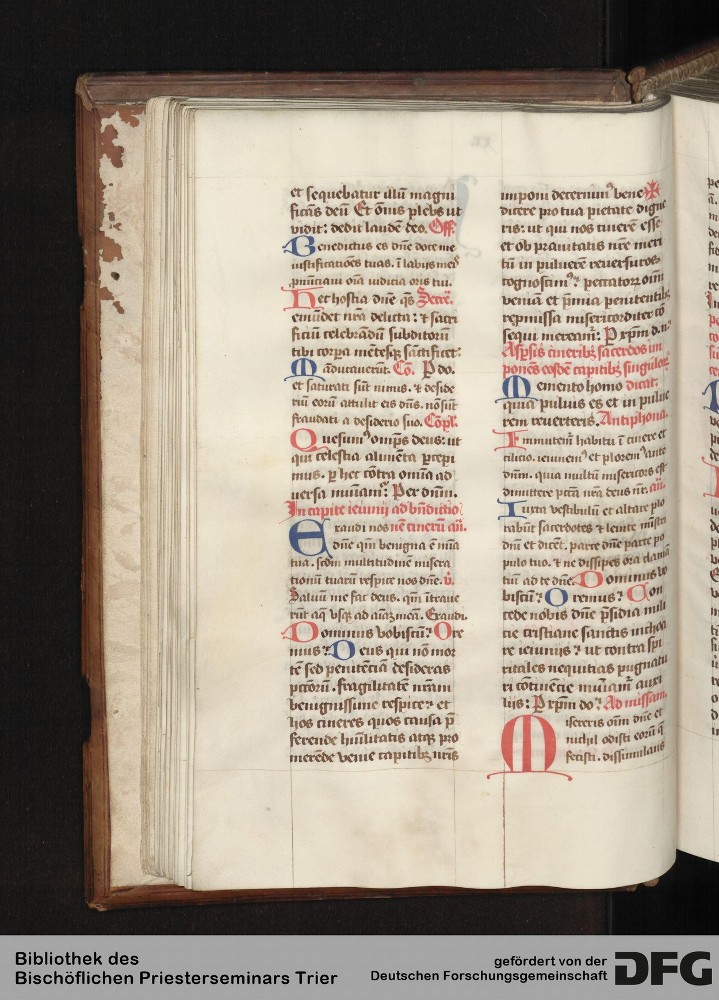 et sequebatur illū magni
ficās deū Et om̄is plebs ut
vidit: dedit laudē deo. Off.
Benedictus es dn̄e doce me
iustificatiōes tuas. ī labijs meꝰ
pn̄ūciaui oīa iudicia oris tui.
Hec hostia dn̄e qs̄ Secre.
emūdet nrā delicta: ⁊ sacri
ficiū celebrādū subditorū
tibi corpꝑa mētesqꝫ sāctificet:
Māducauerūt. Cō. P̄ do.
et saturati sūt nimis. ⁊ deside
riū eorū attulit eis dn̄s. nō sūt
fraudati a desiderio suo. Cōpl.
Quesumꝰ om̄ps deus: ut
qui celestia alimēta ꝑcepi
mus. ꝑ hec cōtra omīa ad
uersa muniam̄: Per dn̄m.
In capite ieiunij ad bn̄dictio
Exaudi nos nē cinerū añ.
dn̄e qm̄ benigna ē mīa
tua. scd̄m multitudinē misera
tionū tuarū respice nos dn̄e. v̄.
Saluū me fac deus. qm̄ ītraue
rūt aq̄ vsqꝫ ad aīaꝫ meā. Exaudi.
Dominus vobiscū: Ore
mus: Deus qui nō mor
tē sed penitētiā desideras
pctōrū. fragilitatē nrām
benignissime respice: et
hos cineres quos causa ꝓ
ferende hūilitatis atqꝫ pro
merēde venie capitibꝫ nrīs
imponi decernimꝰ bene✠
dicere pro tua pietate digne
ris: ut qui nos cinerē esse
et ob prauitatis nrē meri
tū in puluerē reuersuros
cognoscimꝰ: peccatorꝫ oīm
veniā et p̄mia penitentibꝫ
repmissa misericorditer cō
sequi meream̄: P xp̄m d. n.
Asp̄sis cineribꝫ sacerdos im
ponēs eosdē capitibꝫ singulorꝫ
Memento homo dicat.
quia puluis es et in pulue
rem reuerteris. Antiphona.
Immutem̄ habitu ī cinere et
cilicio. ieiunemꝰ et ploremꝰ ante
dn̄m. quia multū misericors est
dimittere pctā nrā deus nr̄. añ.
Iuxta vestibulū et altare plo
rabūt sacerdotes ⁊ leuite mīstri
dn̄i et dicēt. parce dn̄e parce po
pulo tuo. ⁊ ne dissipes ora clamā
tiū ad te dn̄e. Dominus vo
biscū: Oremus: Con
cede nobis dn̄e p̄sidia mili
cie cristiane sanctis inchoa
re ieiunijs: ut contra spi
ritales nequitias pugnatu
ri cōtinencie muniam̄ auxi
liis: P xp̄m do: Ad missam.
Misereris oīm dn̄e et
nichil odisti eorū q̄
fecisti. dissimulans
Bibliothek des
Bischöflichen Priesterseminars Trier
gefördert von der
Deutschen Forschungsgemeinschaft DFG